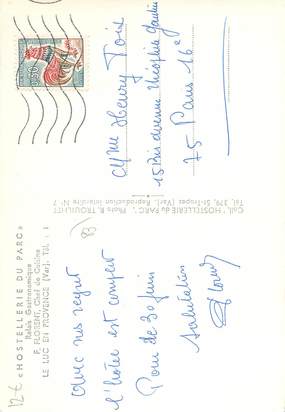 « HOSTELLERIE DU PARC »
Relais Gastronomique
F. FLORENT, Chef de Cuisine
LE LUC EN PROVENCE (Var). Tél. : 1
Avec nos regrets
l'hôtel est complet
Pour de 30 Juin
Salutation
Coll. "HOSTELLERIE du PARC". Photo R. TROUILLET
Tél. 379, St-Tropez (Var). Reproduction Interdite N° 7
0,30
Mme Henry Toix
15 Bis avenue Théophile Gautier
75 Paris 16e
83
12 €